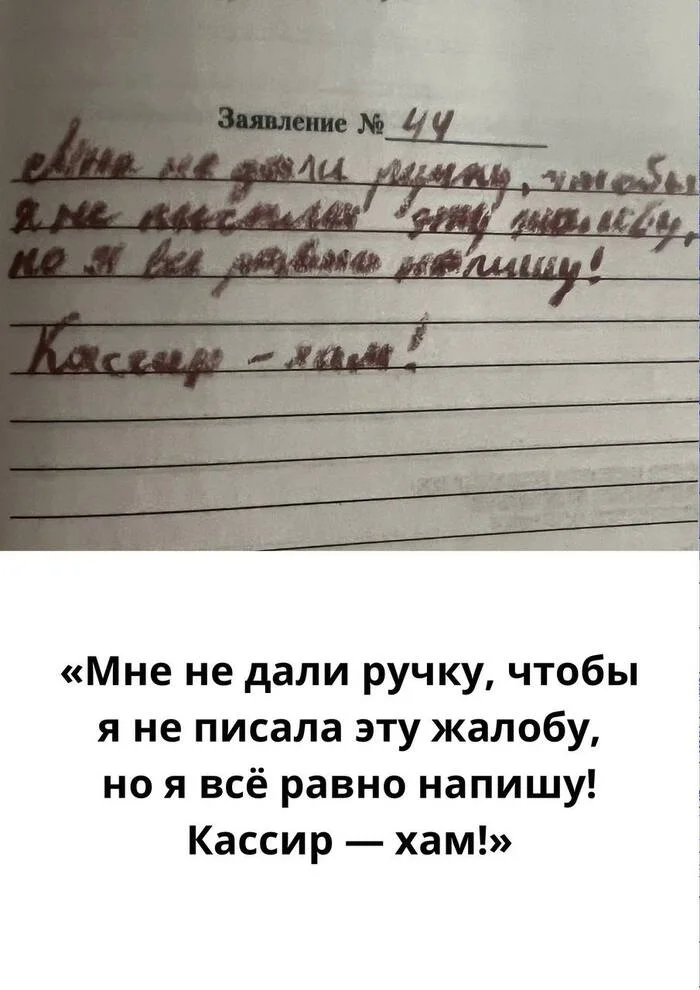 Заявление № 44
Мне не дали ручку, чтобы
я не писала эту жалобу,
но я все равно напишу!
Кассир - хам!
«Мне не дали ручку, чтобы
я не писала эту жалобу,
но я всё равно напишу!
Кассир — хам!»